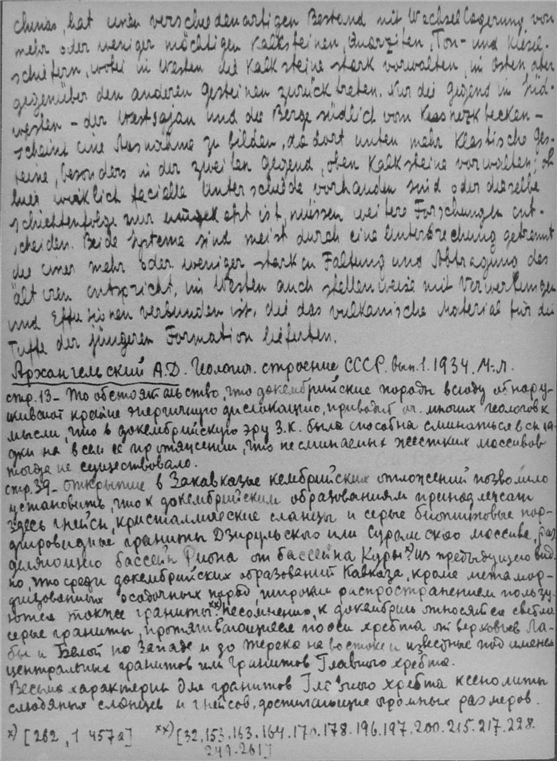 chinas, hat einen verschiedenartigen Bestand mit Wechsellagerung von
mehr oder weniger mächtigen Kalksteinen, Quarziten, Ton- und Kiesel-
schiefern, wobei im Westen die Kalksteine stark vorwalten, im Osten aber
gegenüber den anderen Gesteinen zurücktreten. Nur die Gegend im Süd-
westen – der Westsajan und die Berge südlich vom Kusnezkbecken –
scheint eine Ausnahme zu bilden, da dort unten mehr klastische Ges-
teine, besonders in der zweiten Gegend, oben Kalksteine vorwalten; ob
hier wirklich facielle Unterschiede vorhanden sind oder dieselbe
Schichtenfolge nur umgekehrt ist, müssen weitere Forschungen ent-
scheiden. Beide Systeme sind meist durch eine Unterbrechung getrennt
die einer mehr oder weniger starken Faltung und Abtragung des
älteren entspricht, im Westen auch stellenweise mit Verwerfungen
und Effusionen verbunden ist, die das vulkanische Material für die
Tuffe der jüngeren Formation lieferten.
Архангельский А.Д. Геологич. строение СССР. вып. 1. 1934. М-Л.
стр. 13 – То обстоятельство, что докембрийские породы всюду обнару-
живают крайне энергичную дислокацию, приводит оч. многих геологов к
мысли, что в докембрийскую эру З.К. была способна сминаться в скла-
дки на всем ее протяжении, что несминаемых жестких массивов
тогда не существовало.
стр. 39 – Открытие в Закавказье кембрийских отложений позволило
установить, что к докембрийским образованиям принадлежат
здесь гнейсы, кристаллические сланцы и серые биотитовые пор-
фировидные граниты Дзирульского или Сурамского массива, раз
деляющего бассейн Риона от бассейна Куры. Из предыдущего вид
но, что среди докембрийских образований Кавказа, кроме метамор-
физованных осадочных пород, широким распространением пользу-
ются также граниты. xx) Несомненно, к докембрию относятся светло
серые граниты, протягивающиеся по оси хребта от верховьев Ла-
бы и Белой на Западе и до Терека на востоке и известные под именем
центральных гранитов или гранитов Главного хребта.
Весьма характерны для гранитов Главного хребта ксенолиты
слюдяных сланцев и гнейсов, достигающие огромных размеров.
x) [282, 1 457а] xx) [32. 153. 163. 164. 170. 178. 196. 197. 200. 215. 217. 228.
249. 261]